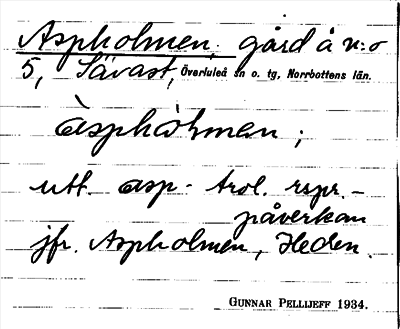 Aspholmen, gård å n:o
5, Sävast, Överluleå sn o. tg, Norrbottens län.
àsphòlmen ;
utt. asp- trol. rspr.-
påverkan
jfr. Aspholmen, Heden.
GUNNAR PELLIJEFF 1934.